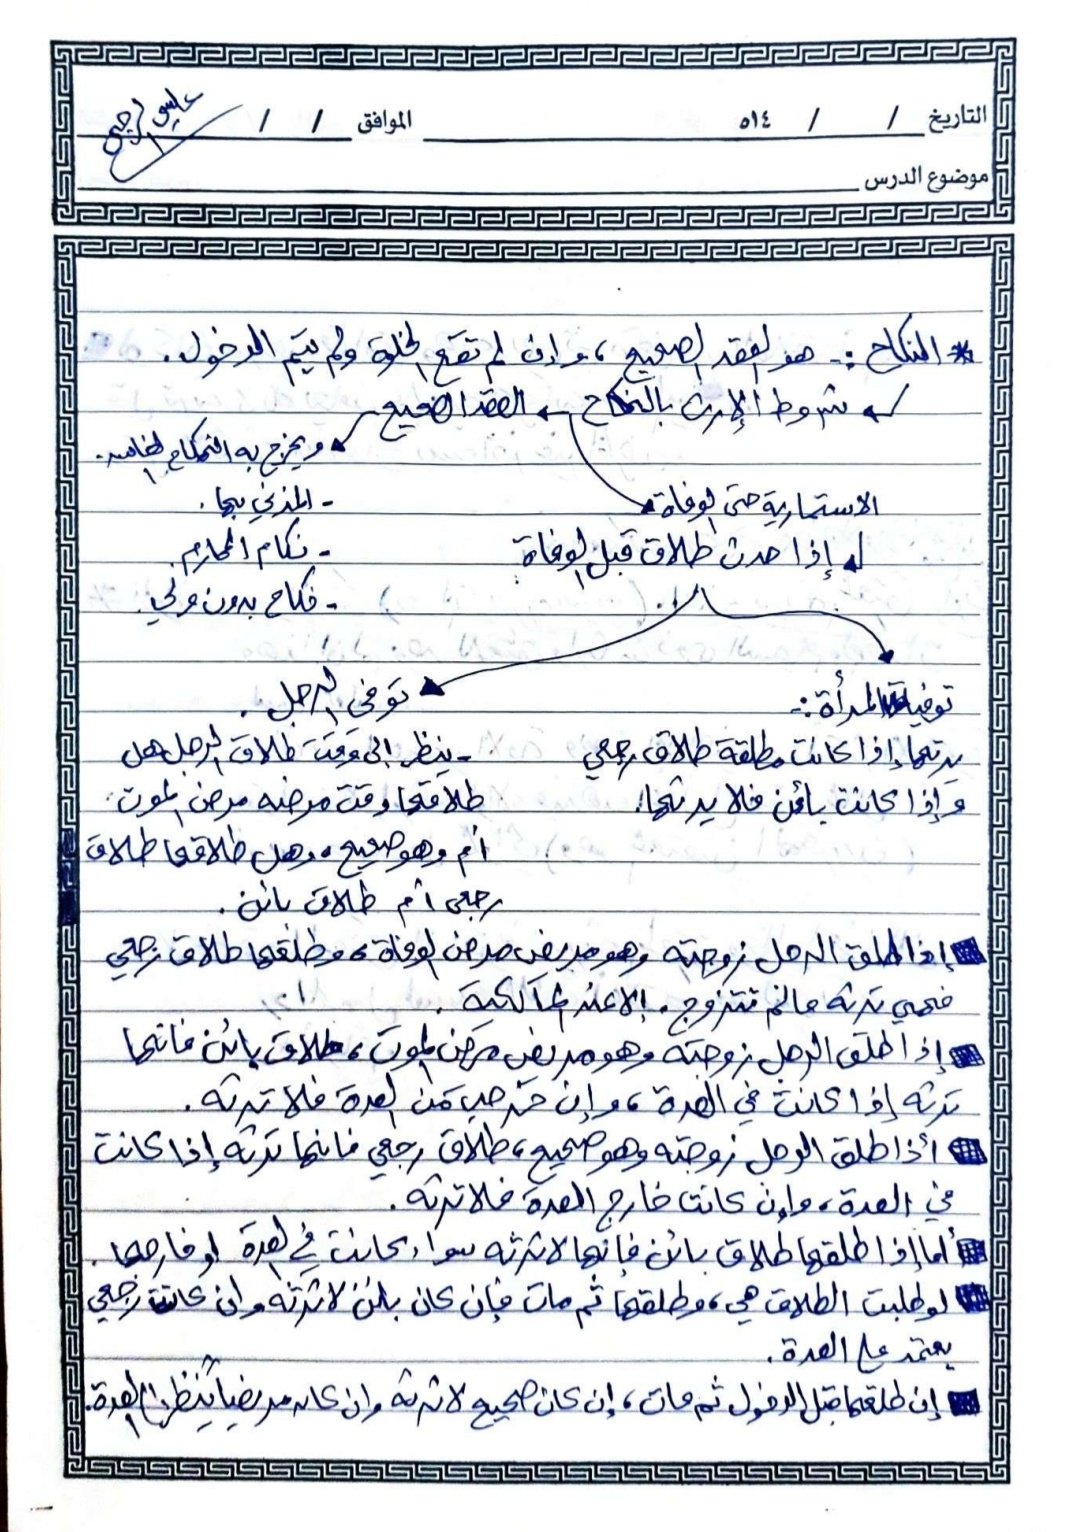 التاريخ / / ١٤هـ الموافق / /
موضوع الدرس
* النكاح :- هو العقد الصحيح ، وإن لم تقع الخلوة ولم يتم الدخول .
شروط الإرث بالنكاح ← العقد الصحيح
ويخرج به النكاح الفاسد .
- المزني بها .
- نكاح المحارم .
- نكاح بدون ولي .
الاستمارية حتى الوفاة
إذا حدث طلاق قبل الوفاة :
توفيت المرأة :-
يرثها إذا كانت مطلقة طلاق رجعي
وإذا كانت بائن فلا يرثها .
توفى الرجل .
- ينظر إلى وقت طلاق الرجل هل
طلاقها وقت مرضه مرض الموت
أم وهو صحيح ، وهل طلاقها طلاق
رجعي أم طلاق بائن .
إذا طلق الرجل زوجته وهو مريض مرض الوفاة ، وطلقها طلاق رجعي
فهي ترثه مالم تتزوج . إلا عند المالكية .
إذا طلق الرجل زوجته وهو مريض مرض الموت ، طلاق بائن فانها
ترثه إذا كانت في العدة ، وإن خرجت من العدة فلا ترثه .
أذا طلق الرجل زوجته وهو صحيح ، طلاق رجعي فانها ترثه إذا كانت
في العدة ، وإن كانت خارج العدة فلا ترثه .
أما إذا طلقها طلاق بائن فإنها لا ترثه سواء كانت في العدة او خارجها .
لو طلبت الطلاق هي ، وطلقها ثم مات فإن كان بائن لا ترثه وان كانت رجعي
يعتمد على العدة .
إن طلقها قبل الدخول ثم مات ، إن كان صحيح لا ترثه وان كان مريضاً يُنظر إلى العدة .